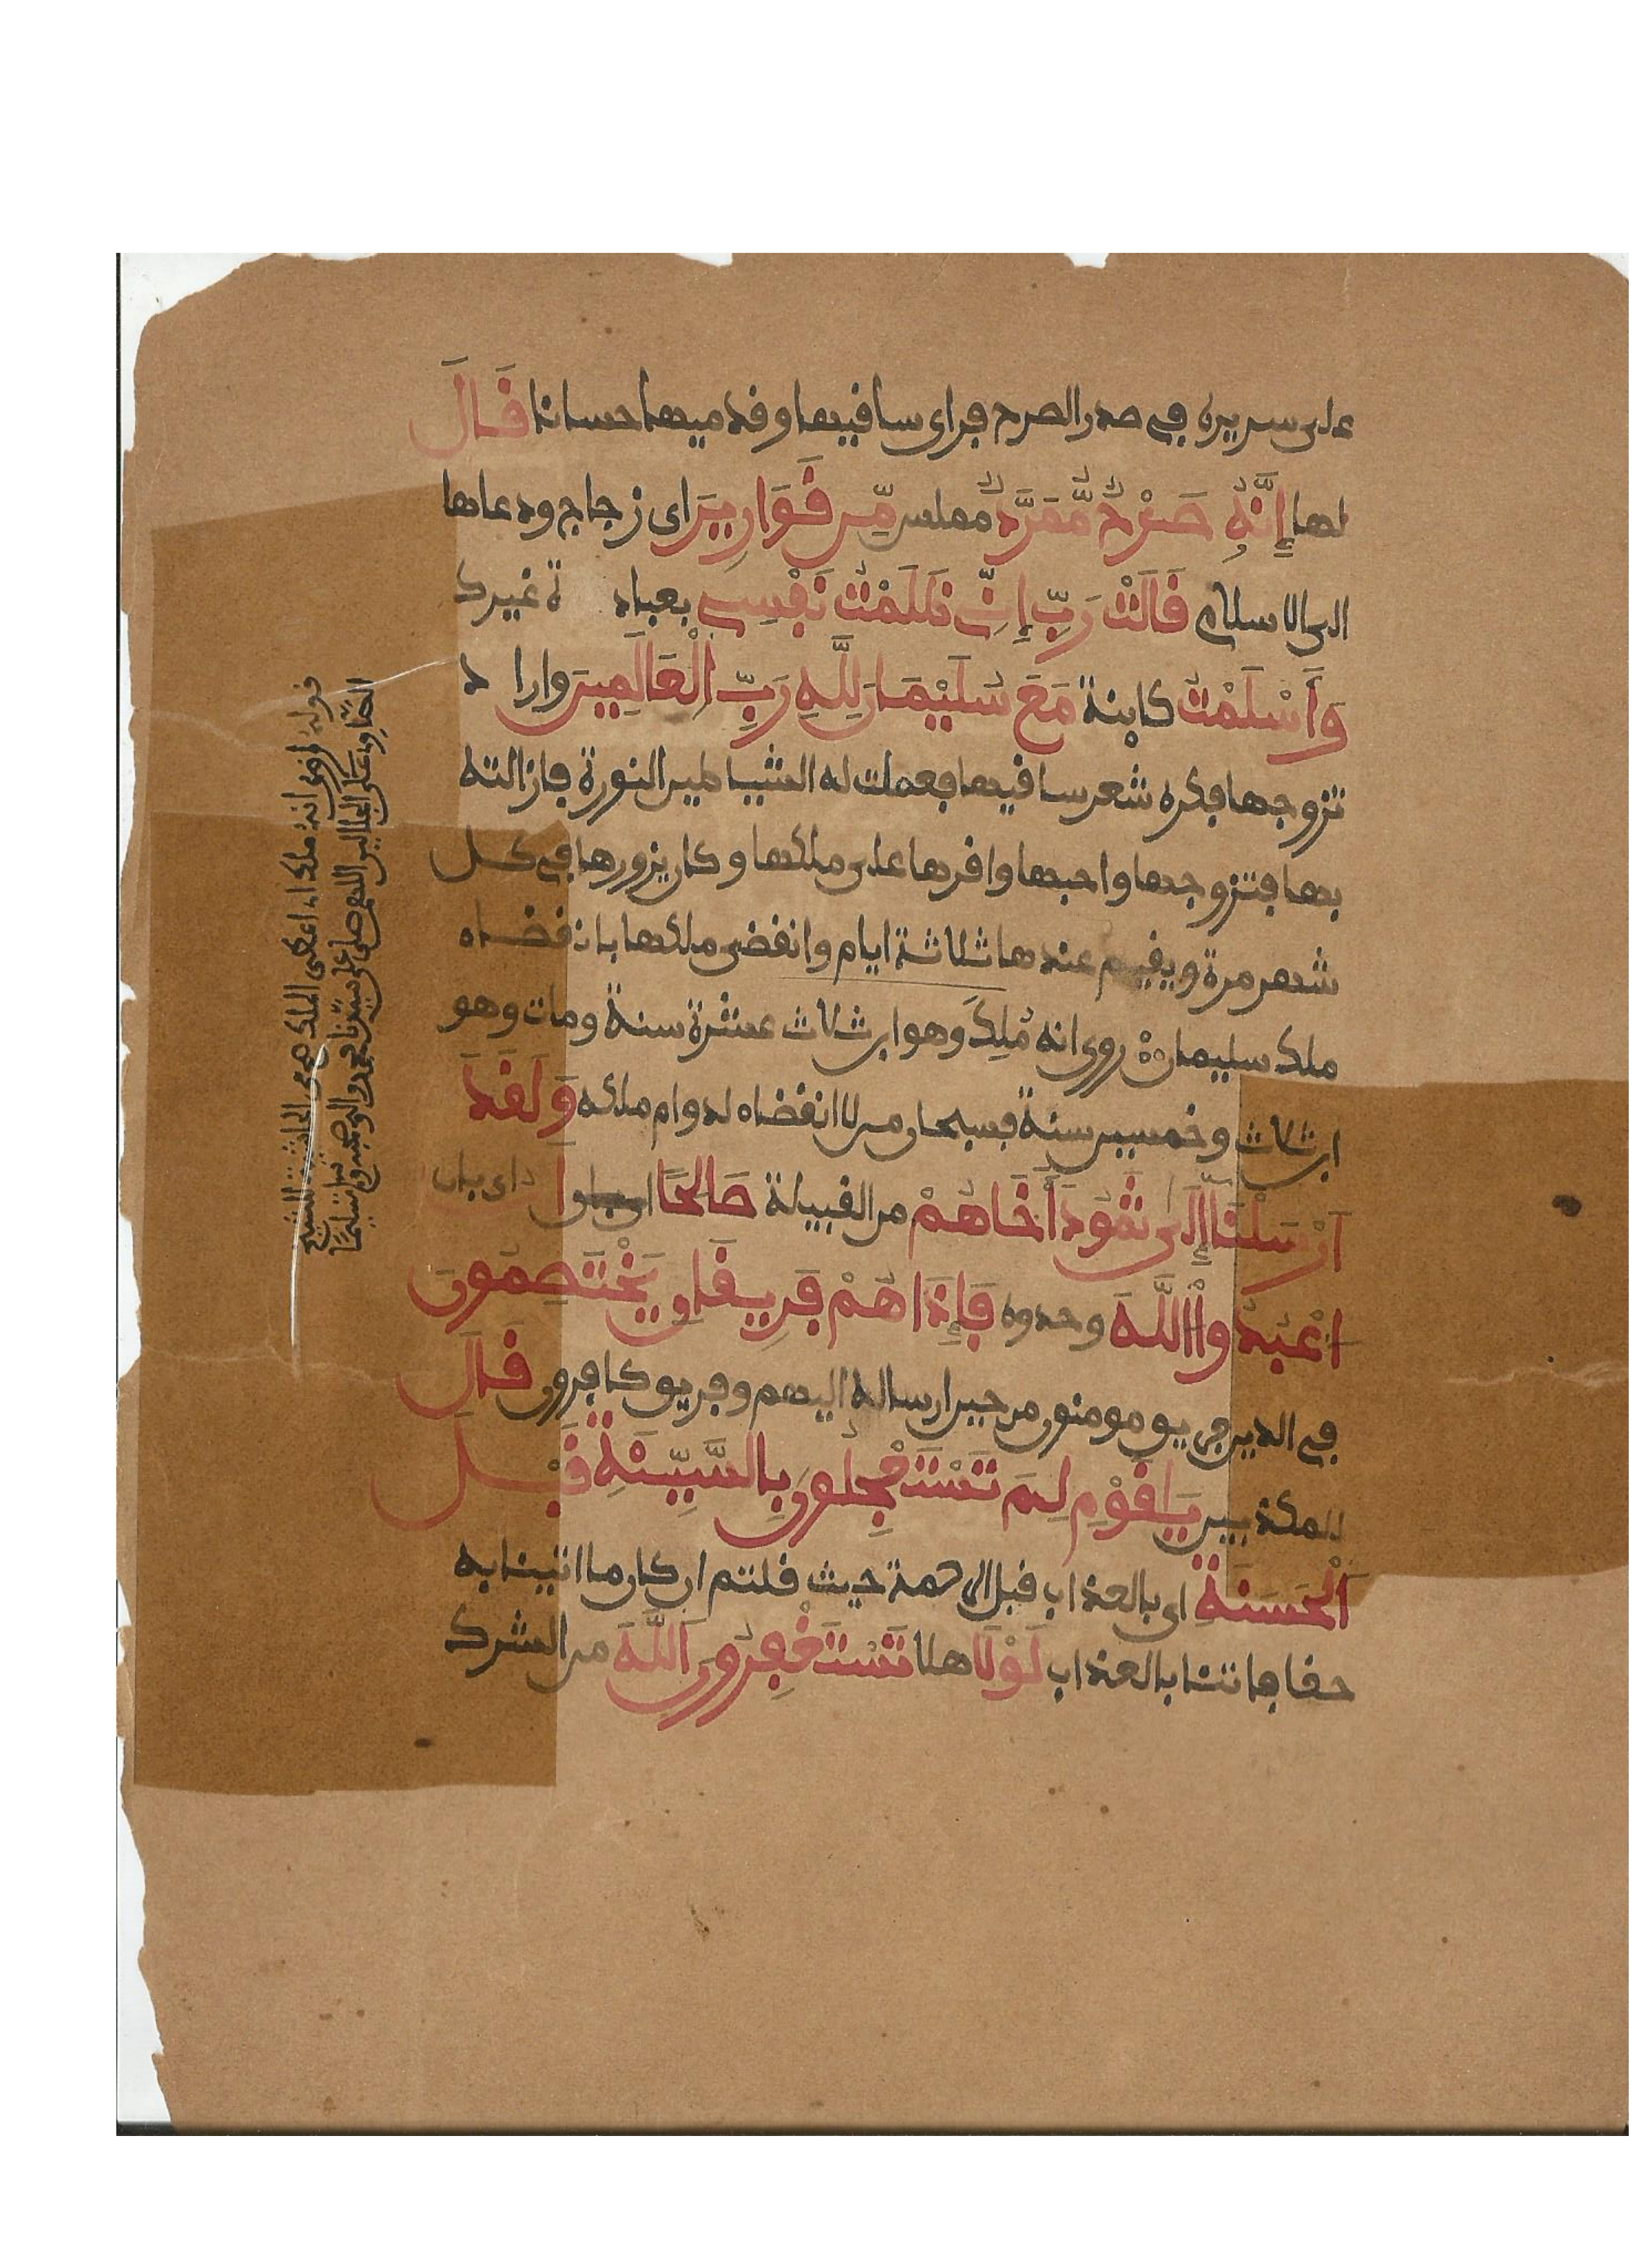 على سريره في صدر الصرح فراى سافيها وقدميها حسانا قَالَ
لها إِنَّهُ صَرْحٌ مُّمَرَّدٌ مملس مِّن قَوَارِيرَ اى زجاج ودعاها
الى الاسلام قَالَتْ رَبِّ إِنِّي ظَلَمْتُ نَفْسِي بعباد ة غيرك
وَأَسْلَمْتُ كاينة مَعَ سُلَيْمَانَ لِلَّهِ رَبِّ الْعَالَمِينَ وارا د
تزوجها فكره شعر سافيها فعملت له الشياطين النورة فازالته
بها فتزوجها واحبها واقرها على ملكها وكان يزورها في كل
شهر مرة ويقيم عندها ثلاثة ايام وانقضى ملكها بانقضاء
ملك سليمان روى انه مُلِكَ وهو ابن ثلاث عشرة سنة ومات وهو
ابن ثلاث وخمسين سنة فسبحان من لا انقضاء لدوام ملكه وَلَقَدَ
اَرْسَلْنَا إِلَى ثَمُودَ أَخَاهُمْ من القبيلة صَالِحًا ا اى بان
اعْبُدُواْ اللَّهَ وحدوه فَإِذَا هُمْ فَرِيقَانِ يَخْتَصِمُونَ
في الدين فريق مومنون من حين ارساله اليهم وفريق كافرون قَالَ
للمكذبين يَاقَوْمِ لِمَ تَسْتَعْجِلُونَ بِالسَّيِّئَةِ قَبْلَ
اَلْحَسَنَةِ اى بالعذاب قبل الرحمة حيث قلتم ان كان ما اتيتنا به
حقا فاتنا بالعذاب لَوْلَا هلا تَسْتَغْفِرُونَ اَللَّهَ من الشرك
قوله روى انه ملك اى اعطى الملك من الحاشية للشيخ
الصاوى على الجلالين اللهم صل على سيدنا محمد واله وصحبه وسلم تسليما